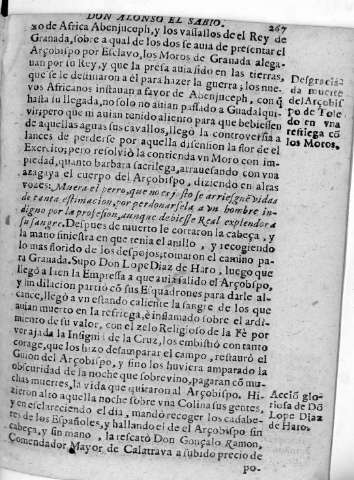 DON ALONSO EL SABIO.
267
xo de Africa Abenjuceph, y los vassallos de el Rey de
Granada, sobre a qual de los dos se auia de presentar el
Arçobispo por Esclavo, los Moros de Granada alega-
uan por su Rey, y que la presa auia sido en las tierras,
que se le destinaron a èl para hazer la guerra; los nue-
vos Africanos instauan a favor de Abenjuceph, con q̃
hasta su llegada, no solo no auian passado a Guadalqui-
vir; pero que ni auian tenido aliento para que bebiessen
de aquellas aguas sus cavallos, llegò la controversia a
lances de perderse por aquella dissension la flor de el
Exercito; pero resolviò la contienda vn Moro con im-
piedad, quanto barbara sacrilega, atrauessando con vna
azagaya el cuerpo del Arçobispo, diziendo en altas
vozes: Muera el perro, que no es justo se arriesguẽ vidas
de tanta estimacion, por perdonarsela a vn hombre in-
digno por la profession, aunque debiesse Real explendor a
su sangre. Despues de muerto le cortaron la cabeça, y
la mano siniestra en que tenia el anillo, y recogiendo
lo mas florido de los despojos, tomaron el camino pa-
ra Granada. Supo Don Lope Diaz de Haro, luego que
llegò a Iaen la Empressa a que auia salido el Arçobispo,
y sin dilacion partiò cõ sus Esquadrones para darle al-
cance, llegò a vn estando caliente la sangre de los que
auian muerto en la refriega, è inflamado sobre el ardi-
miento de su valor, con el zelo Religioso de la Fè por
ver ajada la Insignia de la Cruz, los embistiò con tanto
corage, que los hizo desamparar el campo, restaurò el
Guion del Arçobispo, y sino los huviera amparado la
obscuridad de la noche que sobrevino, pagaran cõ mu-
chas muertes, la vida que quitaron al Arçobispo. Hi-
zieron alto aquella noche sobre vna Colina sus gentes,
y en esclareciendo el dia, mandò recoger los cadabe-
res de los Españoles, y hallando el de el Arçobispo sin
cabeça, y sin mano, la rescatò Don Gonçalo Ramon,
Comendador Mayor de Calatrava a subido precio de
po-
Desgracia
da muerte
del Arçobis
po de Tole
do en vna
refriega cõ
los Moros.
Acciõ glo-
riosa de Dõ
Lope Diaz
de Haro.